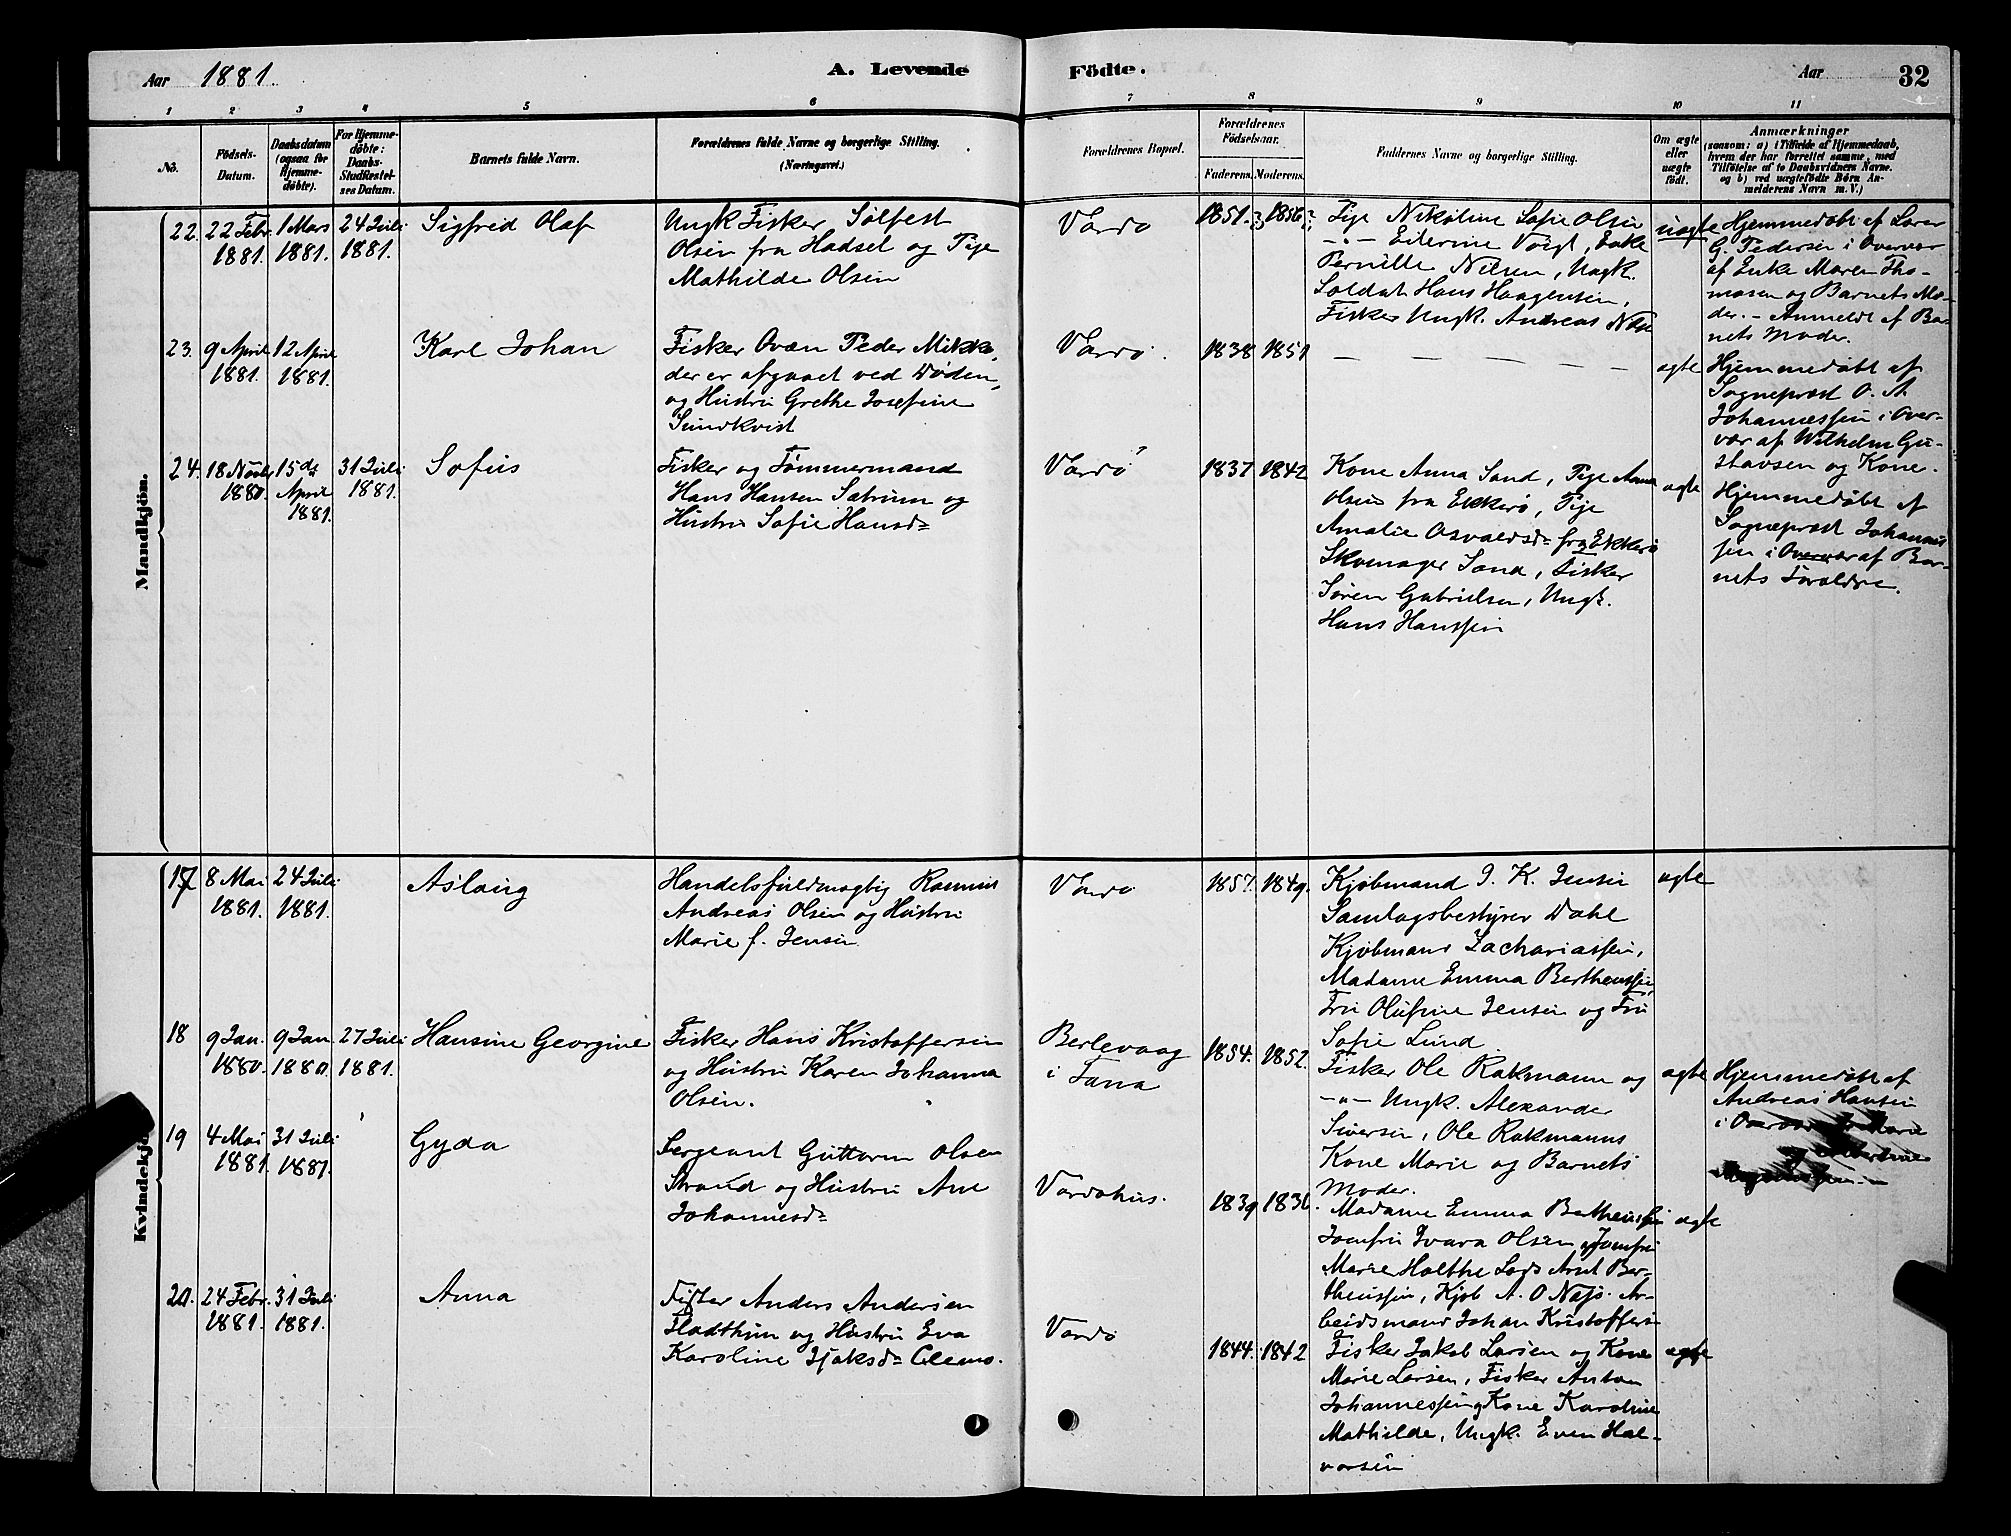 Aar 1881.
A. Levende Födte.
Aar 32
1 2 3 4 5 6 7 8 9 10 11
No.
Födsels-Datum.
Daabsdatum (ogsaa for Hjemmedöbte).
For Hjemmedöbte: Daabs-Stadfæstelses Datum.
Barnets fulde Navn.
Forældrenes fulde Navne og borgerlige Stilling. (Næringsvei.)
Forældrenes Bopæl.
Forældrenes Födselsaar.
Faderens. Moderens.
Faddernes Navne og borgerlige Stilling.
Om ægte eller uægte födt.
Anmærkninger (saasom: a) i Tilfælde af Hjemmedaab, hvem der har forrettet samme, med Tilföielse af to Daabsvidners Navne. og b) ved uægtefödte Börn Anmelderens Navn m. V.)
Mandkjön.
22. 22 Febr. 1881. 1 Mars 1881. 24 Juli 1881.
Sigfrid Olaf
Ungk Fisker Sølfest
Olsen fra Hadsel og Pige
Mathilde Olsen
Vardø
1851.? 1856?
Pige Nikoline Sofie Olsen
-"- Eilerine Voigt, Enke
Pernille Nilsen, Ungk.
Soldat Hans Haagensen,
Fisker Ungk. Andreas Nilse
uægte
Hjemmedøbt af Lærer
G. Pedersen i Overvær
af Enke Maren Tho-
masen og Barnets Mo-
der. - Anmeldt af Bar-
nets Moder.
23. 9 April 1881. 12 April 1881.
Karl Johan
Fisker Ovæn Peder Mikk.
der er afgaaet ved Døden,
og Hustru Grethe Josefine
Sundkvist
Vardø.
1838 1851
— — — — — —
ægte
Hjemmedøbt af
Sogneprest O. A.
Johannessen i Over-
vær af Wilhelm Gu-
stavsen og Kone.
24. 18 Novbr 1880. 15de April 1881. 31 Juli 1881.
Sofus
Fisker og Tømmermand
Hans Hansen Sætrum og
Hustru Sofie Hansd=
Vardø
1837 1842
Kone Anna Sand, Pige Anna
Olsen fra Ekkerø, Pige
Amalie Osvaldsd= fra Ekkerø
Skomager Sand, Fisker
Søren Gabrielsen, Ungk.
Hans Hanssen
ægte
Hjemmedøbt af
Sogneprest Johannes
sen i Overvær af Bar-
nets Forældre.
Kvindekjön.
17 8 Mai 1881. 24 Juli 1881.
Aslaug
Handelsfuldmægtig Rasmus
Andreas Olsen og Hustru
Marie f. Jensen
Vardø
1857. 1849.
Kjøbmand J. K. Jensen
Samlagsbestyrer Dahl
Kjøbmand Zachariassen,
Madame Emma Berthenssen,
Fru Olufine Jensen og Fru
Sofie Lund
ægte
18 9 Jan. 1880. 9 Jan. 1880. 27 Juli 1881.
Hansine Georgine
Fisker Hans Kristoffersen
og Hustru Karen Johanna
Olsen.
Berlevaag
i Tana
1854. 1852.
Fisker Ole Rakmann og
-"- Ungk. Alexander
Siversen, Ole Rakmanns
Kone Marie og Barnets
Moder.
ægte
Hjemmedøbt af
Andreas Hansen
i Overvær
19 4 Mai 1881. 31 Juli 1881.
Gyda
Sergeant Guttorm Olsen
Strand og Hustru Ane
Johannesd=
Vardøhus.
1839 1836.
Madame Emma Berthenssen
Jomfru Ivara Olsen og Jomfru
Marie Holthe Lods Arnt Ber-
thenssen, Kjøb A. O Næss. Ar-
beidsmand Johan Kristoffers
ægte
20. 24 Febr. 1881. 31 Juli 1881.
Anna
Fisker Anders Andersen
Fladthum og Hustru Eva
Karoline Isaksd=
Vardø
1844. 1842
Fisker Jakob Larsen og Kone
Marie Larsen, Fisker Anton
Johannessen og Kone Karoline
Mathilde, Ungk. Even Hal-
vorsen
ægte